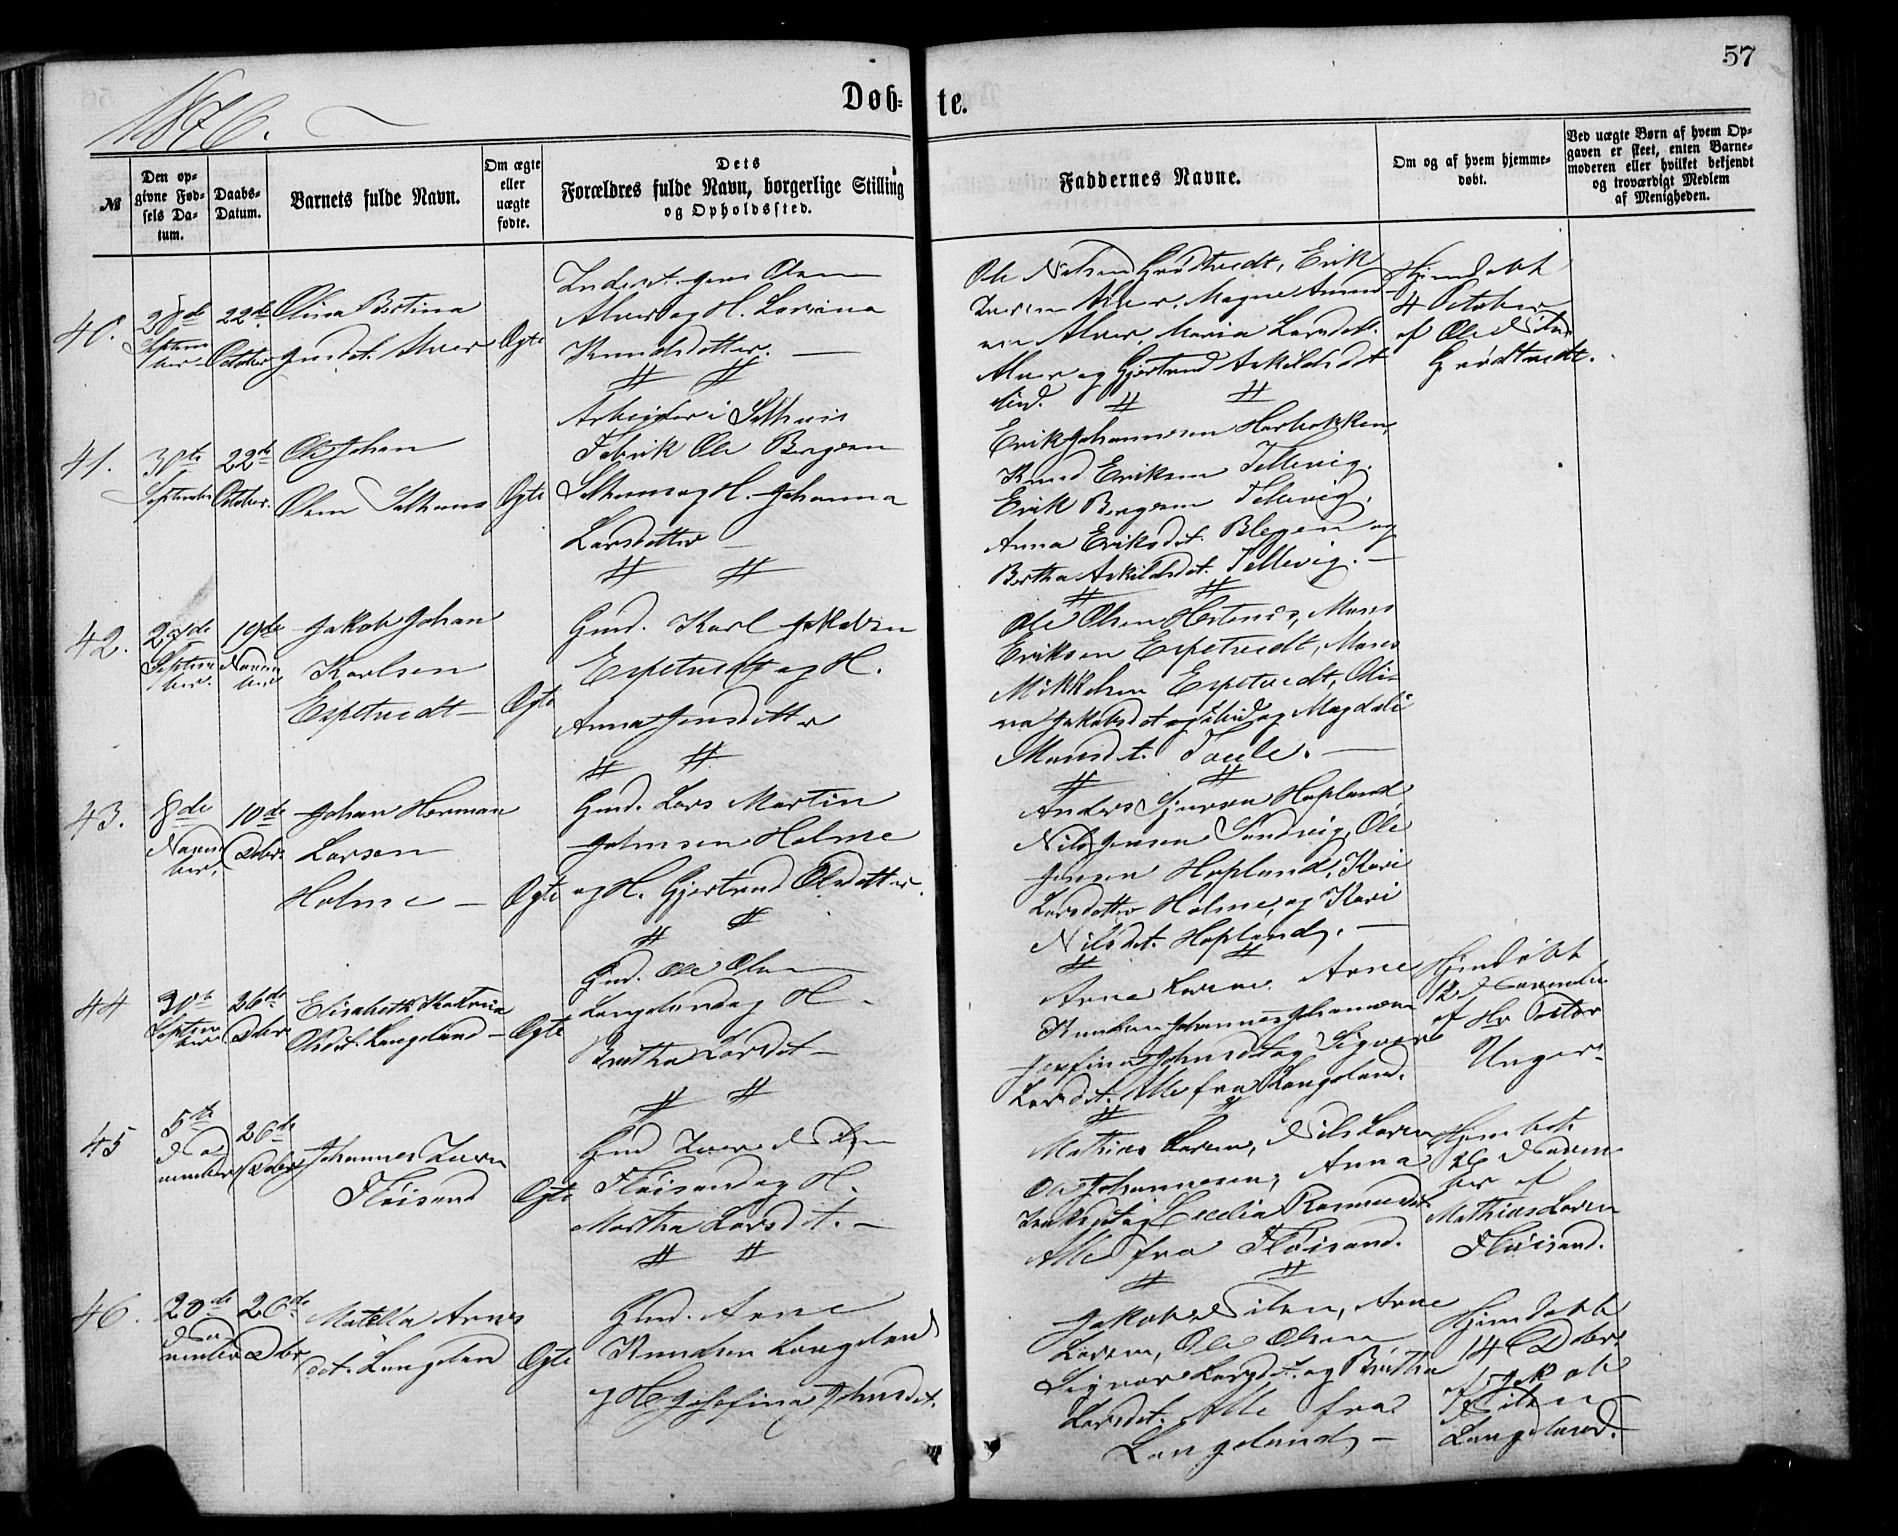 57
1876.
Døb- te.
№
Den op-
givne Fød-
sels Da-
tum.
Daabs-
Datum.
Barnets fulde Navn.
Om ægte
eller
uægte
fødte.
Dets
Forældres fulde Navn, borgerlige Stilling
og Opholdssted.
Faddernes Navne.
Om og af hvem hjemme-
døbt.
Ved uægte Børn af hvem Op-
gaven er skeet, enten Barne-
moderen eller hvilket bekjendt
og troværdigt Medlem
af Menigheden.
40.
28de
Septem
ber
22de
October
Olina Bertina
Alver
Ægte
Olsen
Alver og H.
Knudsdotter. —
Ole Nilsen Grødtvedt, Erik
Alver, Magne
Alver, Maria Larsdtt.
Alver og Gjertrud Askildsdt
Hjemdøbt
4 October
af Ole Nilsen
Grødtvedt.
41.
30te
September
22de
October.
Ole Johan
Olsen Salhus
Ægte
Arbeider i Salhuus
Fabrik Ole Bergesen
Salhuus og H. Johanna
Larsdotter —
Erik Johannesen
Knud Eriksen Tellevig.
Erik Bergesen Tellevig,
Anna Eriksdt. og
Bertha Askildsdt. Tellevig. —
42.
27de
Septem
ber.
19de
Novem
ber
Jakob Johan
Karlsen
Espetvedt —
Ægte
Gmd. Karl Jakobsen
Espetvedt og H.
Anna Jensdotter
Ole Olsen Hertnes, Mons
Eriksen Espetvedt, Mons
Mikkelsen Espetvedt, Oli-
na Jakobsdt og Magdeli
Monsdt. Toule. —
43.
8de
Novem
ber.
10de
Dcbr.
Johan Herman
Larsen
Holme —
Ægte
Gmd. Lars Martin
Johnsen Holme
og H. Gjertrud Olsdotter.
Anders Sjursen Hopland
Nils Jensen Sundvig, Ole
Jensen Hopland, Kari
Larsdotter Holme, og Kari
Nilsdt. Hopland. —
44
30te
Septem
ber
26de
Dcbr
Elisabeth Katrina
Olsdt. Langeland —
Ægte
Gmd. Ole Olsen
Langeland og H.
Brita Larsdt —
Arne Larsen, Arne
Knudsen, Johannes Johannesen
Josefina Johnsdt og Signer
Larsdt. Alle fra Langeland.
Hjemdøbt
12 November
af Hr Doctor
Unger
45
5te
No-
vember
26de
Dcbr
Johannes Iversen
Fløisand
Ægte
Gmd Iver Nilsen
Fløisand og H.
Martha Larsdt. —
Mathias Larsen, Nils Larsen
Ole Johannesen, Anna
og Cecilia Rasmusdt.
Alle fra Fløisand.
Hjemdøbt
26 Novem
ber af
Mathias Larsen
Fløisand.
46.
20de
No-
vember
26de
Dcbr
Matilla Arnes
dt. Langeland
Ægte
Gmd. Arne
Knudsen Langeland
og H. Josefina Johnsdt.
Jakob Nilsen, Arne
Larsen, Ole Olsen
Signer Larsdt. og Britha
Larsdt. Alle fra
Langeland. —
Hjemdøbt
14 Dcbr.
af Jakob
Nilsen
Langeland.